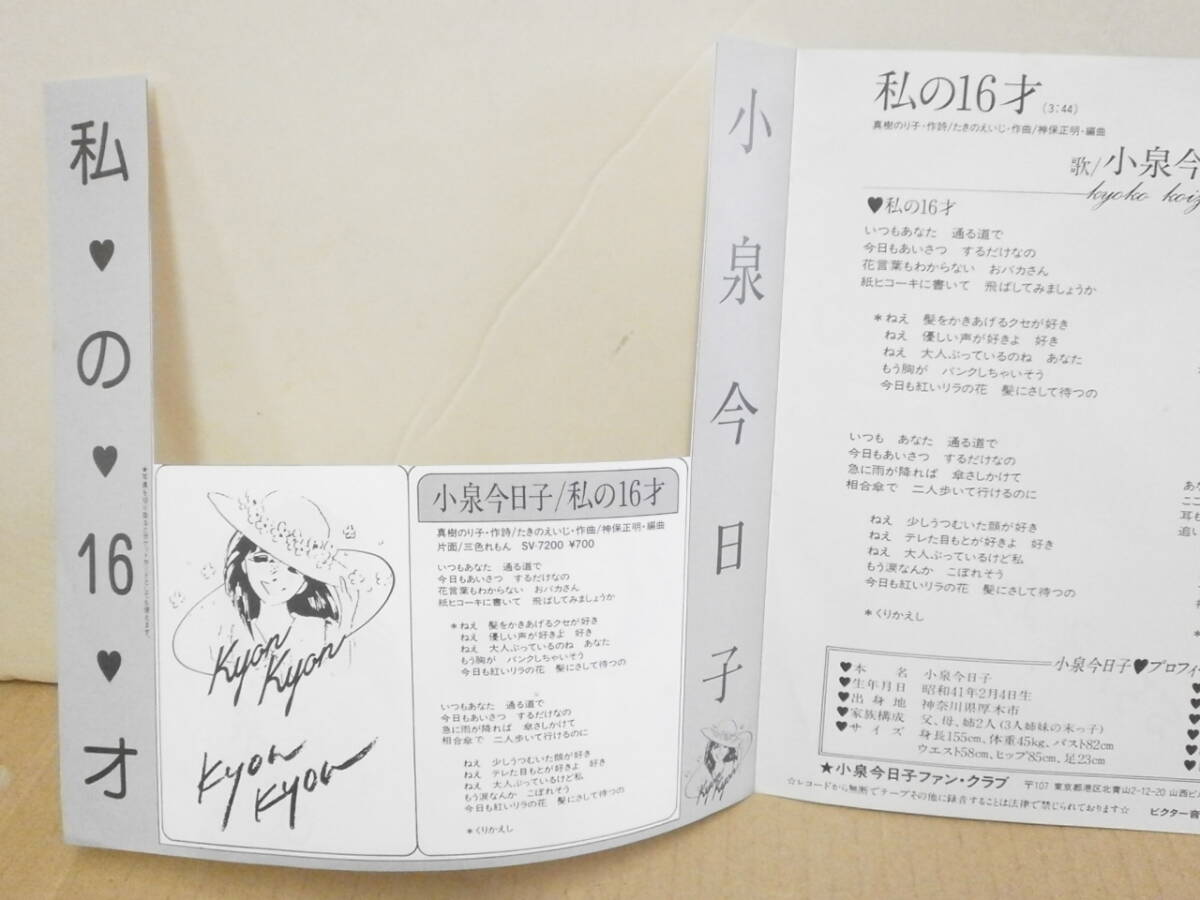 私♥の♥16♥才
Kyon
Kyon
Kyon
Kyon
小泉今日子/私の16才
真樹のり子・作詩/たきのえいじ・作曲/神保正明・編曲
片面/三色れもん SV-7200 ¥700
いつもあなた 通る道で
今日もあいさつ するだけなの
花言葉もわからない おバカさん
紙ヒコーキに書いて 飛ばしてみましょうか
*ねえ 髪をかきあげるクセが好き
ねえ 優しい声が好きよ 好き
ねえ 大人ぶっているのね あなた
もう胸が パンクしちゃいそう
今日も紅いリラの花 髪にさして待つの
いつもあなた 通る道で
今日もあいさつ するだけなの
急に雨が降れば 傘さしかけて
相合傘で 二人歩いて行けるのに
ねえ 少しうつむいた顔が好き
ねえ テレた目もとが好きよ 好き
ねえ 大人ぶっているけど私
もう涙なんか こぼれそう
今日も紅いリラの花 髪にさして待つの
*くりかえし
小泉今日子
Kyon
Kyon
私の16才 (3:44)
真樹のり子・作詩/たきのえいじ・作曲/神保正明・編曲
歌/小泉今
kyoko koiz
♥私の16才
いつもあなた 通る道で
今日もあいさつ するだけなの
花言葉もわからない おバカさん
紙ヒコーキに書いて 飛ばしてみましょうか
*ねえ 髪をかきあげるクセが好き
ねえ 優しい声が好きよ 好き
ねえ 大人ぶっているのね あなた
もう胸が パンクしちゃいそう
今日も紅いリラの花 髪にさして待つの
いつも あなた 通る道で
今日もあいさつ するだけなの
急に雨が降れば 傘さしかけて
相合傘で 二人歩いて行けるのに
ねえ 少しうつむいた顔が好き
ねえ テレた目もとが好きよ 好き
ねえ 大人ぶっているけど私
もう涙なんか こぼれそう
今日も紅いリラの花 髪にさして待つの
*くりかえし
あな
ここ
耳も
追い
小泉今日子♥プロフィー
♥本名 小泉今日子
♥生年月日 昭和41年2月4日生
♥出身地 神奈川県厚木市
♥家族構成 父、母、姉2人(3人姉妹の末っ子)
♥サイズ 身長155cm、体重45kg、バスト82cm
ウエスト58cm、ヒップ85cm、足23cm
★小泉今日子ファン・クラブ 〒107 東京都港区北青山2-12-20 山西ビル
☆レコードから無断でテープその他に録音することは法律で禁じられております☆ ビクター音